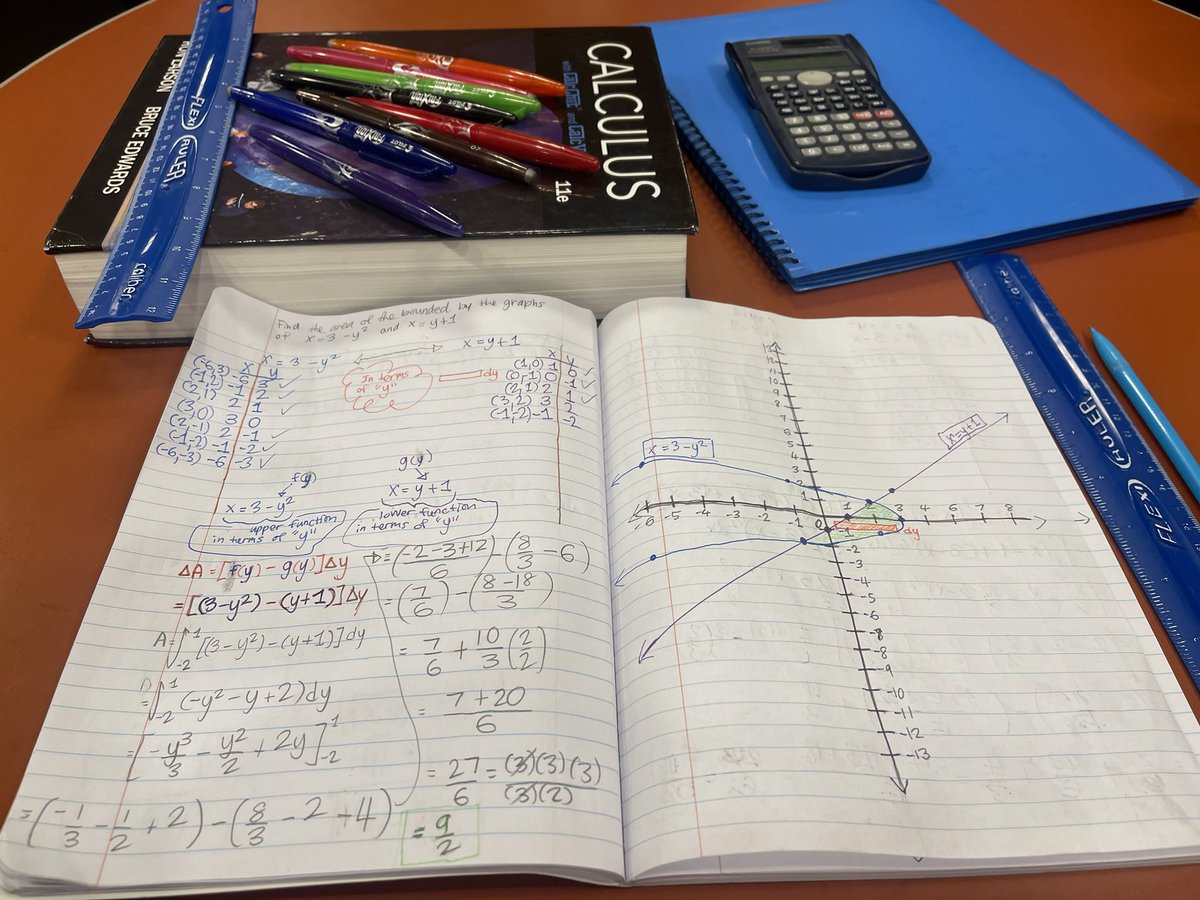 CALCULUS
11e
RON LARSON BRUCE EDWARDS
FLEXi RULER
caliber
PILOT FriXion
Find the area of the bounded by the graphs
of x = 3 - y² and x = y + 1
x = 3 - y²
x = y + 1
x y
(-6,3) -6 3
(-1,2) -1 2
(2,1) 2 1
(3,0) 3 0
(2,-1) 2 -1
(-1,-2) -1 -2
(-6,-3) -6 -3
In terms
of "y"
dy
x y
(1,0) 1 0
(0,-1) 0 -1
(2,1) 2 1
(3,2) 3 2
(-1,-2) -1 -2
f(y)
x = 3 - y²
upper function
in terms of "y"
g(y)
x = y + 1
lower function
in terms of "y"
ΔA = [f(y) - g(y)]Δy
= [(3-y²)-(y+1)]Δy
A = ∫₋₂¹ [(3-y²)-(y+1)]dy
= ∫₋₂¹ (-y² - y + 2)dy
= -y³/3 - y²/2 + 2y]₋₂¹
= (-1/3 - 1/2 + 2) - (8/3 - 2 + 4)
= (-2-3+12/6) - (8/3 - 6)
= (7/6) - (8-18/3)
= 7/6 + 10/3 (2/2)
= 7+20/6
= 27/6 = (3)(3)(3)/(3)(2)
= 9/2
x = 3 - y²
x = y + 1
13
12
11
10
9
8
7
6
5
4
3
2
1
-6 -5 -4 -3 -2 -1 0 1 3 4 5 6 7 8
dy
-1
-2
-3
-4
-5
-6
-8
-8
-9
-10
-11
-12
-13
FLEXi RULER